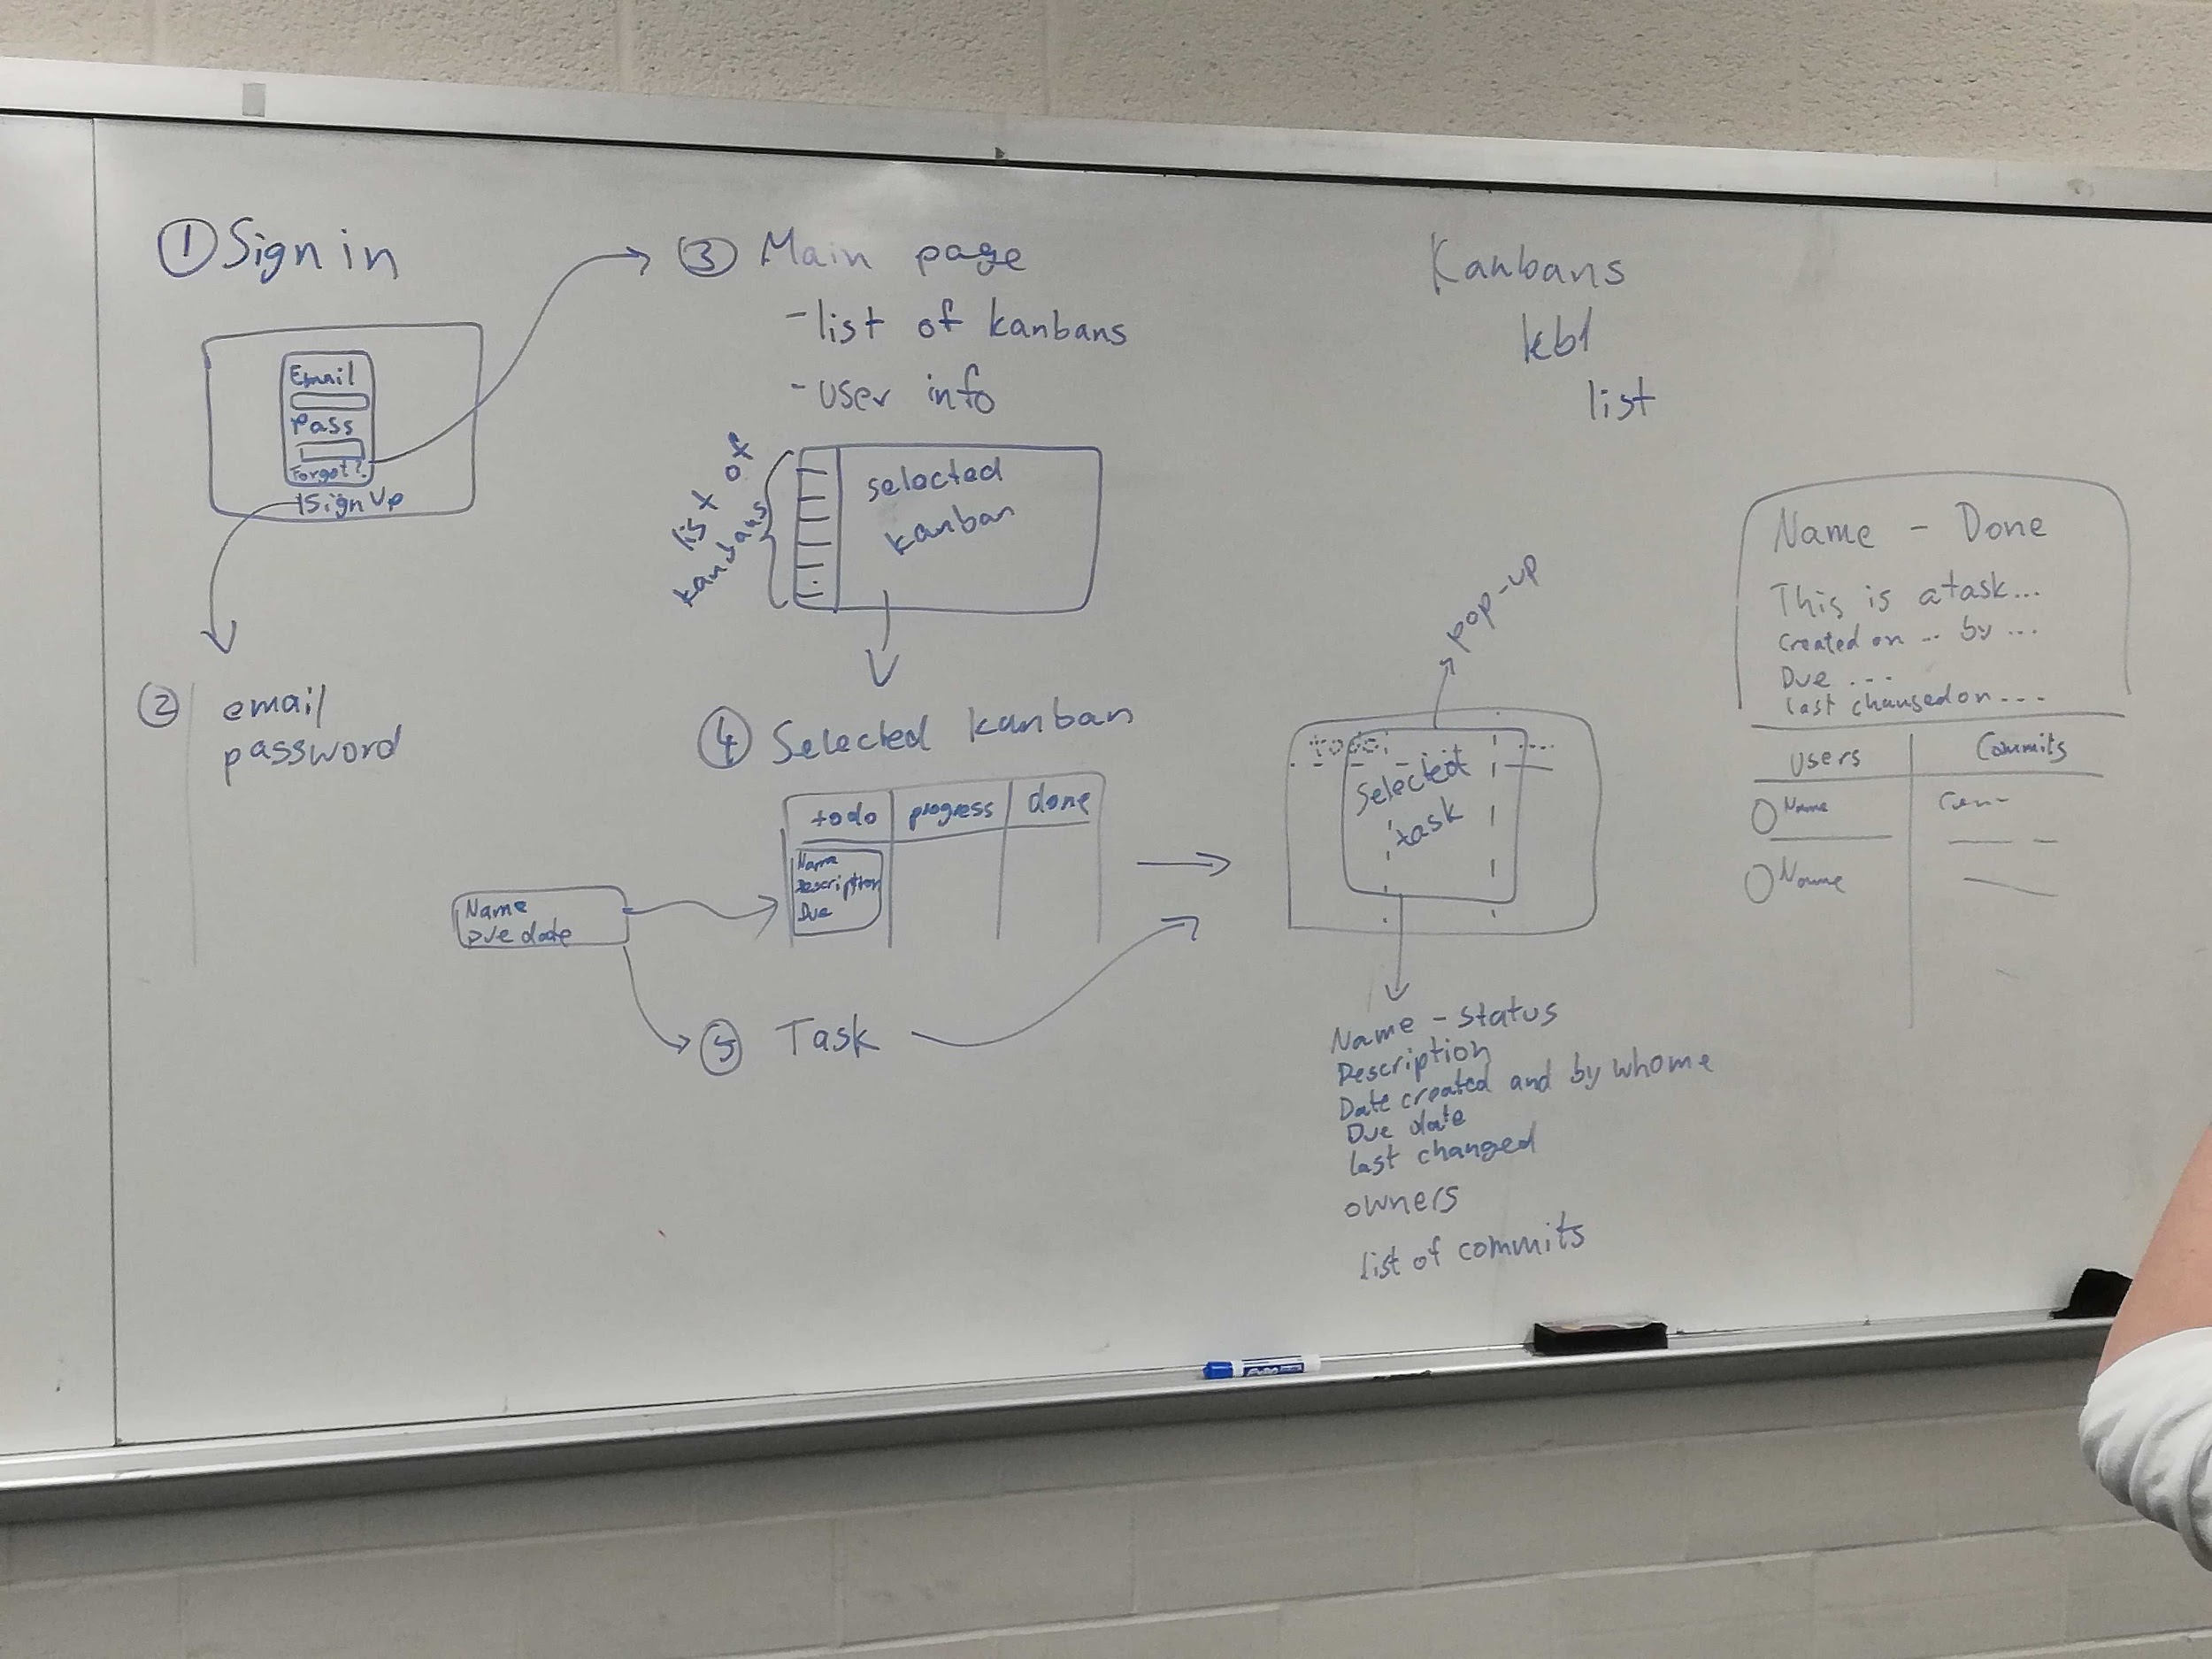 ① Sign in
Email
Pass
Forgot?
Sign Up
② email
password
③ Main page
- list of kanbans
- user info
list of
kanbans
selected
kanban
④ Selected kanban
todo progress done
Name
Description
Due
Name
Due date
⑤ Task
Kanbans
kb1
list
pop-up
todo
Selected
task
Name - status
Description
Date created and by whome
Due date
last changed
owners
list of commits
Name - Done
This is a task...
Created on ... by ...
Due ...
last changed on ...
Users Commits
Name
Name